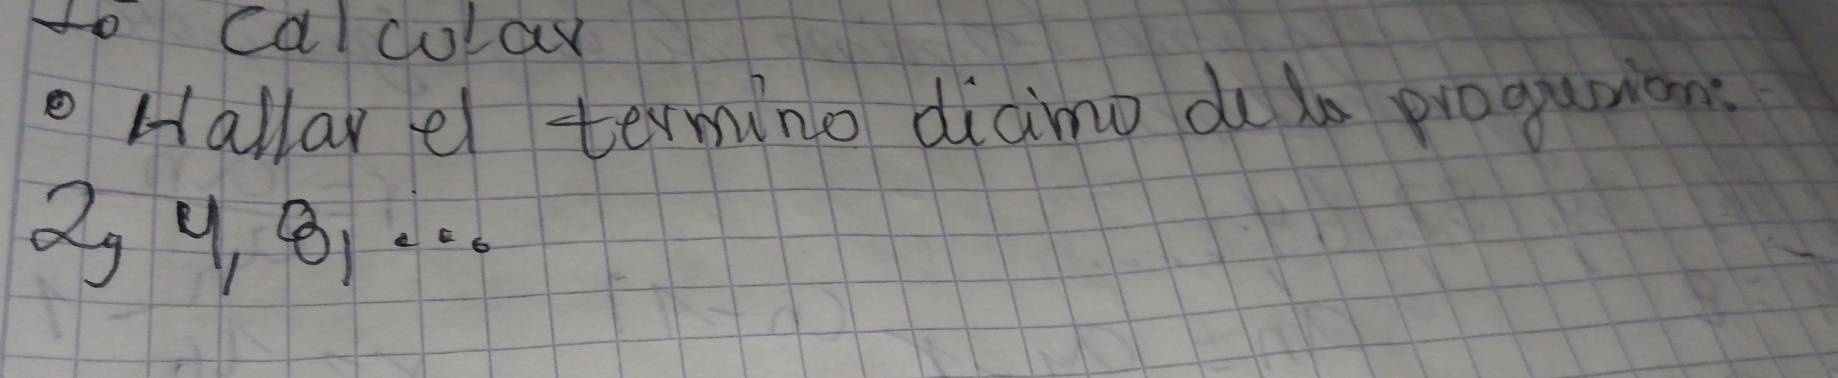 to calcular
Hallar el termino dicimo de la progresion:
2, 4, 8, ...